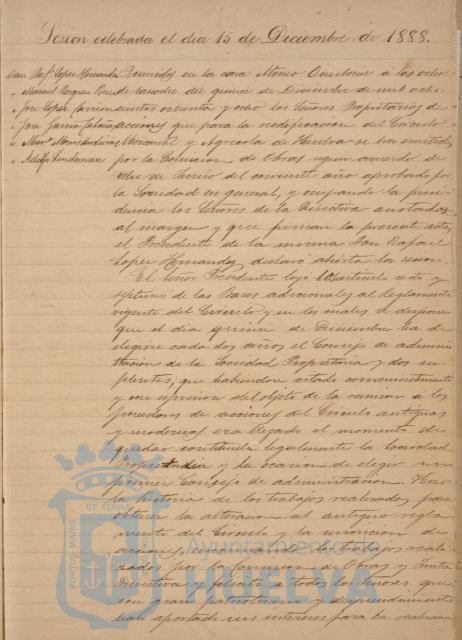 Sesion celebrada el dia 15 de Diciembre de 1888.
Don Raf.l Lopez Hernandez
" Manuel Vazquez
" Jose Lopez
" Jose Garcia
" Adolfo Lindeman
Reunidos en la casa Ateneo Onubense á las ocho
de la noche del quince de Diciembre de mil ocho
cientos ochenta y ocho los Señores Propietarios de
acciones que para la reedificacion del Circulo
Mercantil y Agricola de Huelva se ha emitido
por la Comision de Obras segun acuerdo de
de Junio del corriente año aprobado por
la Sociedad en general, y ocupando la presi
dencia los Señores de la Directiva anotados
al margen y que firman la presente acta,
el Presidente de la misma Don Rafael
Lopez Hernandez declaró abierta la sesion.
El Señor Presidente leyó los articulos sesto y
septimo de las Bases adicionales al Reglamento
vigente del Circulo y en los cuales se dispone
que el dia quince de Diciembre ha de
elegirse cada dos años el Consejo de adminis
tracion de la Sociedad Propietaria y dos su
plentes; que habiendose citado convenientemente
y con espresion del objeto de la reunion á los
poseedores de acciones del Circulo antiguas
y modernas era llegado el momento de
quedar constituida legalmente la Sociedad
Propietaria y la ocasion de elegir su
primer Consejo de administracion. Hace
la historia de los trabajos realizados, para
obtener la alteracion al antiguo regla
mento del Circulo y la suscricion de
acciones, los trabajos reali
zados por la Comision de Obras y Junta
Directiva y felicita á todos los Señores que
con gran patriotismo y desprendimiento
han aportado sus intereses para la
PORTUS MARIS
ET TERRAE
Ayuntamiento de
HUELVA